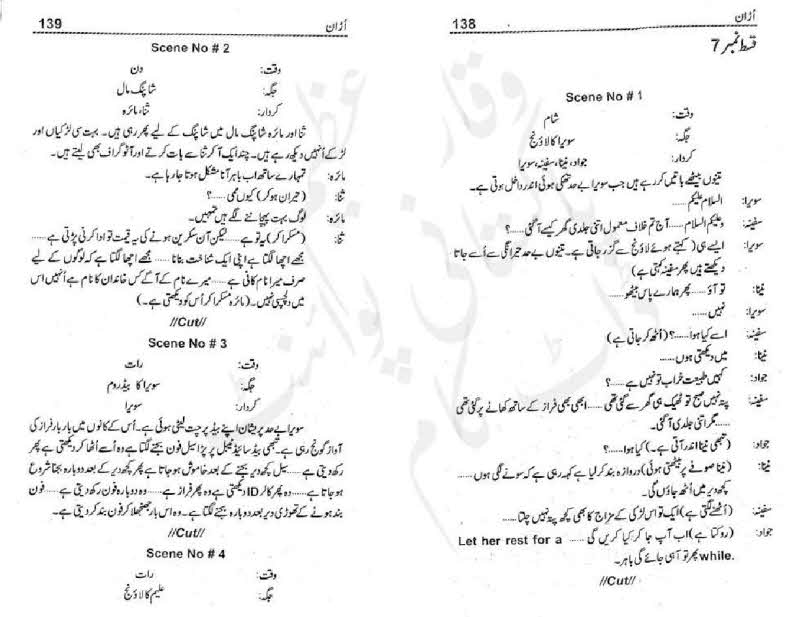 اُڑان
138
قسط نمبر 7
Scene No # 1
وقت: شام
جگہ: سویرا کا لاؤنج
کردار: جواد، نینا، سفینہ، سویرا
تینوں بیٹھے باتیں کر رہے ہیں جب سویرا بے حد تھکی ہوئی اندر داخل ہوتی ہے۔
سویرا: السلام علیکم ......
سفینہ: وعلیکم السلام ...... آج تم خلاف معمول اتنی جلدی گھر کیسے آ گئی ......؟
سویرا: ایسے ہی (کہتے ہوئے لاؤنج سے گزر جاتی ہے۔ تینوں بے حد حیرانگی سے اُسے جاتا
دیکھتے ہیں پھر سفینہ کہتی ہے)
نینا: تو آؤ ...... پھر ہمارے پاس بیٹھو ......
سویرا: نہیں ......
سفینہ: اسے کیا ہوا ......؟ (اُٹھ کر جاتی ہے)
نینا: میں دیکھتی ہوں ......
جواد: کہیں طبیعت خراب تو نہیں ہے ......؟
سفینہ: پتہ نہیں صبح تو ٹھیک ہی گھر سے گئی تھی ...... ابھی بھی فراز کے ساتھ کھانے پر گئی تھی
...... مگر اتنی جلدی آ گئی۔
جواد: (تبھی نینا اندر آتی ہے۔) کیا ہوا ......؟
نینا: (نینا صوفے پر بیٹھتی ہوئی) دروازہ بند کر لیا ہے کہہ رہی ہے کہ سونے لگی ہوں ......
کچھ دیر میں اُٹھ جاؤں گی۔
سفینہ: (اُٹھنے لگتی ہے) ایک تو اس لڑکی کے مزاج کا بھی کچھ پتہ نہیں چلتا ......
جواد: (روکتا ہے) اب آپ جا کر کیا کریں گی ...... Let her rest for a
while. پھر تو آ ہی جائے گی باہر۔
//Cut//
اُڑان
139
Scene No # 2
وقت: دن
جگہ: شاپنگ مال
کردار: ثنا، مائرہ
ثنا اور مائرہ شاپنگ مال میں شاپنگ کے لیے پھر رہی ہیں۔ بہت سی لڑکیاں اور
لڑکے اُنہیں دیکھ رہے ہیں۔ چند ایک آ کر ثنا سے بات کرتے اور آٹو گراف بھی لیتے ہیں۔
مائرہ: تمہارے ساتھ اب باہر آنا مشکل ہوتا جا رہا ہے۔
ثنا: (حیران ہو کر) کیوں بھئی ......؟
مائرہ: لوگ بہت پہچاننے لگے ہیں تمہیں۔
ثنا: (مسکرا کر) یہ تو ہے ...... لیکن آن سکرین ہونے کی یہ قیمت تو ادا کرنی پڑتی ہے ......
مجھے اچھا لگتا ہے اپنی ایک شناخت بنانا ...... مجھے اچھا لگتا ہے کہ لوگوں کے لیے
صرف میرا نام کافی ہے ...... میرے نام کے آگے کس خاندان کا نام ہے اُنہیں اس
میں دلچسپی نہیں۔ (مائرہ مسکرا کر اُس کو دیکھتی ہے۔)
//Cut//
Scene No # 3
وقت: رات
جگہ: سویرا کا بیڈ روم
کردار: سویرا
سویرا بے حد پریشان اپنے بیڈ پر چت لیٹی ہوئی ہے۔ اُس کے کانوں میں بار بار فراز کی
آواز گونج رہی ہے۔ تبھی بیڈ سائیڈ ٹیبل پر پڑا سیل فون بجنے لگتا ہے وہ اُسے اُٹھا کر دیکھتی ہے پھر
رکھ دیتی ہے ...... سیل کچھ دیر بجنے کے بعد خاموش ہو جاتا ہے پھر کچھ دیر کے بعد دوبارہ بجنا شروع
ہو جاتا ہے ...... وہ پھر کالر ID دیکھتی ہے وہ پھر فراز ہے ...... وہ دوبارہ فون رکھ دیتی ہے ...... فون
بند ہونے کے تھوڑی دیر بعد دوبارہ بجنے لگتا ہے۔ وہ اس بار جھنجھلا کر فون بند کر دیتی ہے۔
//Cut//
Scene No # 4
وقت: رات
جگہ: علیم کا لاؤنج